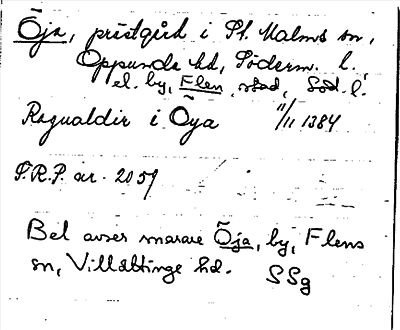 Öja, prästgård i St. Malms sn,
Oppunda hd, Söderm. l.,
el. by, Flen, stad, Söd. l.
Ragualdir i Öya 11/11 1384
S.R.P. nr. 2059
Bel avser snarare Öja, by, Flens
sn, Villåttinge hd. SSg